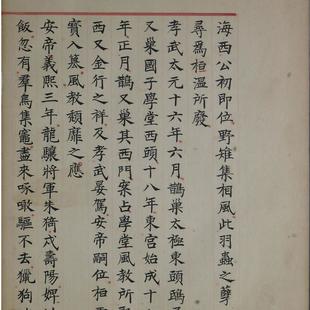 海西公初即位野雉集相風此羽蟲之孽
尋爲桓溫所廢
孝武太元十六年六月鵲巢太極東頭鴟
又巢國子學堂西頭十八年東宮始成十
年正月鵲又巢其西門案占學堂風教所
西又金行之祥及孝武晏駕安帝嗣位桓
實入簒風教頹靡之應
安帝義熙三年龍驤將軍朱猗戍壽陽婢
飯忽有羣烏集竈盡來啄噉驅不去獵狗